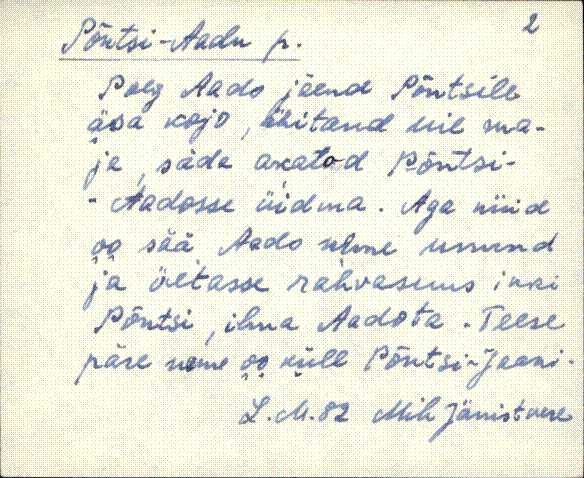 2
Põntsi-Aadu p.
Poeg Aado jäend Põntsile
äsa kojo, ehitand uie ma-
ja, säda akatod Põntsi-
-Aadosse üidma. Aga nüid
oo sää Aado nime unund
ja öetasse rahvasuus ikki
Põntsi, ilma Aadota. Teese
päre nime oo küll Põntsi-Jaani.
L.M.82 Mih Jänistvere